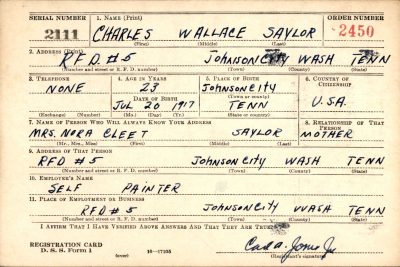 SERIAL NUMBER 1. NAME (Print) ORDER NUMBER
2111 CHARLES WALLACE SAYLOR 2450
(First) (Middle) (Last)
2. ADDRESS (Print)
RFD #5 JOHNSON CITY WASH TENN
(Number and street or R. F. D. number) (Town) (County) (State)
3. TELEPHONE 4. AGE IN YEARS 5. PLACE OF BIRTH 6. COUNTRY OF CITIZENSHIP
NONE 23 JOHNSON CITY
DATE OF BIRTH (Town or county)
JUL 20 1917 TENN U.S.A.
(Exchange) (Number) (Mo.) (Day) (Yr.) (State or country)
7. NAME OF PERSON WHO WILL ALWAYS KNOW YOUR ADDRESS 8. RELATIONSHIP OF THAT PERSON
MRS. NORA CLEET SAYLOR MOTHER
(Mr., Mrs., Miss) (First) (Middle) (Last)
9. ADDRESS OF THAT PERSON
RFD #5 JOHNSON CITY WASH TENN
(Number and street or R. F. D. number) (Town) (County) (State)
10. EMPLOYER'S NAME
SELF PAINTER
11. PLACE OF EMPLOYMENT OR BUSINESS
RFD #5 JOHNSON CITY WASH TENN
(Number and street or R. F. D. number) (Town) (County) (State)
I AFFIRM THAT I HAVE VERIFIED ABOVE ANSWERS AND THAT THEY ARE TRUE.
REGISTRATION CARD
D. S. S. Form 1 (over) 16—17105 (Registrant's signature)